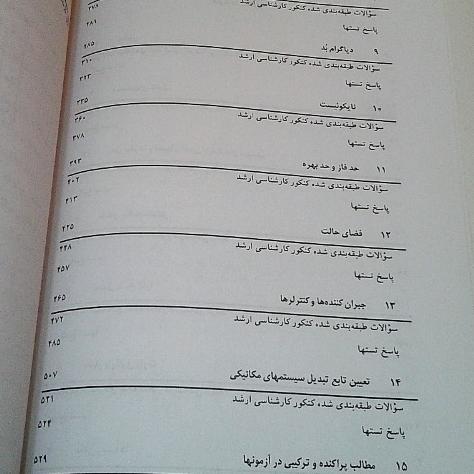 سؤالات طبقه‌بندی شده کنکور کارشناسی ارشد ۲۷۸
پاسخ تستها ۲۸۱
۹ دیاگرام بُد ۲۸۵
سؤالات طبقه‌بندی شده کنکور کارشناسی ارشد ۳۱۰
پاسخ تستها ۳۲۳
۱۰ نایکوئیست ۳۳۵
سؤالات طبقه‌بندی شده کنکور کارشناسی ارشد ۳۶۰
پاسخ تستها ۳۷۸
۱۱ حد فاز و حد بهره ۳۹۳
سؤالات طبقه‌بندی شده کنکور کارشناسی ارشد ۴۰۲
پاسخ تستها ۴۱۳
۱۲ فضای حالت ۴۲۵
سؤالات طبقه‌بندی شده کنکور کارشناسی ارشد ۴۴۸
پاسخ تستها ۴۵۷
۱۳ جبران کننده‌ها و کنترلرها ۴۶۵
سؤالات طبقه‌بندی شده کنکور کارشناسی ارشد ۴۷۲
پاسخ تستها ۴۸۵
۱۴ تعیین تابع تبدیل سیستمهای مکانیکی ۵۰۷
سؤالات طبقه‌بندی شده کنکور کارشناسی ارشد ۵۲۱
پاسخ تستها ۵۲۴
۱۵ مطالب پراکنده و ترکیبی در آزمونها ۵۲۹